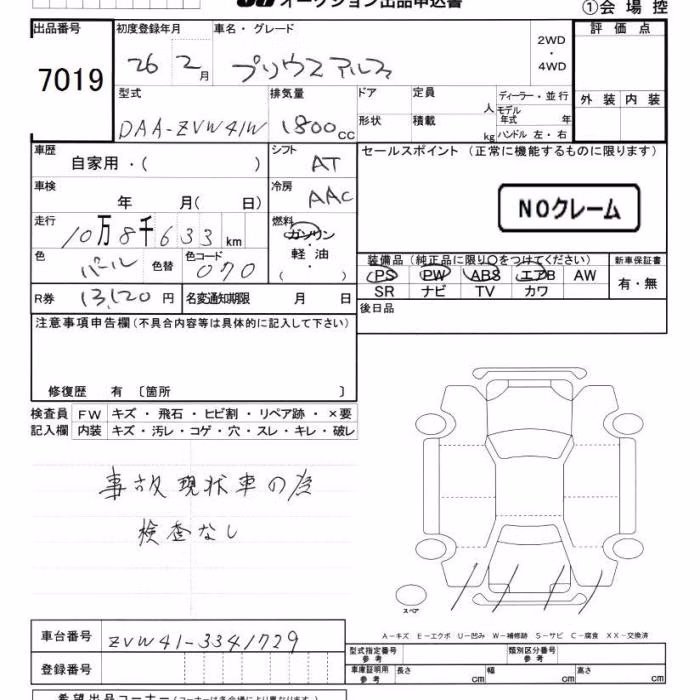 オークション出品申込書
①会 場 控
出品番号
7019
初度登録年月
26 2月
車名・グレード
プリウスアルファ
2WD
・
4WD
評 価 点
外 装 内 装
型式
DAA-ZVW41W
排気量
1800 CC
ドア
形状
定員
人
積載
kg
ディーラー・並行
モデル年式 年
ハンドル 左・右
車歴
自家用・( )
シフト
AT
セールスポイント (正常に機能するものに限ります)
NOクレーム
車検
年 月( 日)
冷房
AAC
走行
10万8千633km
燃料
ガソリン
・
軽 油
・
( )
色
パール
色替
色コード
070
装備品 (純正品に限り○をつけてください)
PS PW ABS エアB AW
SR ナビ TV カワ
新車保証書
有・無
R券
13,120 円
名変通知期限 月 日
後日品
注意事項申告欄(不具合内容等は具体的に記入して下さい)
修復歴 有 〔箇所 〕
検査員記入欄
FW キズ・飛石・ヒビ割・リペア跡・×要
内装 キズ・汚レ・コゲ・穴・スレ・キレ・破レ
事故現状車の為
検査なし
スペア
A-キズ E-エクボ U-凹み W-補修跡 S-サビ C-腐食 XX-交換済
車台番号
ZVW41-3341729
登録番号
型式指定番号
参考
類別区分番号
参考
車庫証明用
参考
長さ cm 幅 cm 高さ cm
希望出品コーナー(コーナーは各会場により異なります)